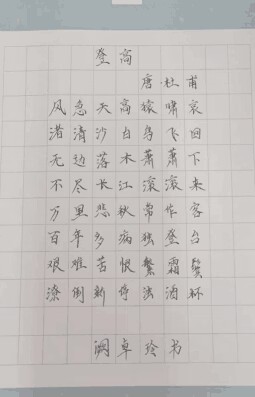 登高
唐 杜甫
风急天高猿啸哀
渚清沙白鸟飞回
无边落木萧萧下
不尽长江滚滚来
万里悲秋常作客
百年多病独登台
艰难苦恨繁霜鬓
潦倒新停浊酒杯
阙卓玲书